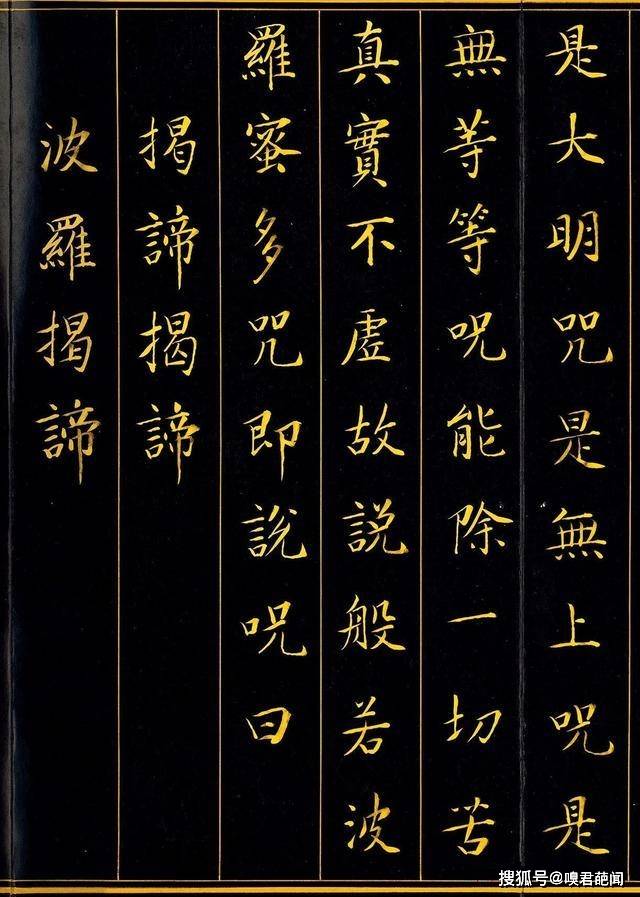 是大明咒是無上呪是
無等等呪能除一切苦
真實不虛故説般若波
羅蜜多咒即説呪曰
揭諦揭諦
波羅揭諦
搜狐号@嗅君葩闻